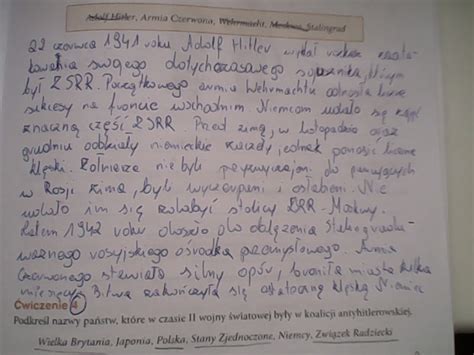 Adolf Hitler, Armia Czerwona, Wehrmacht, Moskwa, Stalingrad
22 czerwca 1941 roku Adolf Hitler wydał rozkaz zaata-
kowania swojego dotychczasowego sojusznika, którym
był ZSRR. Początkowo armia Wehrmachtu odnosiła
sukcesy na froncie wschodnim Niemcom udało się zająć
znaczną część ZSRR. Przed zimą, w listopadzie oraz
grudniu oddziały niemieckie jednak ponosić liczne
klęski. Żołnierze nie byli przyzwyczajeni do panujących
w Rosji zimą, byli wyczerpani i osłabieni. Nie
udało im się zdobyć stolicy ZSRR - Moskwy.
Latem 1942 roku doszło do oblężenia Stalingradu-
ważnego rosyjskiego ośrodka przemysłowego. Armia
Czerwonego stawiało silny opór, broniła miasta kilka
miesięcy. Bitwa zakończyła się ostateczną klęską Niemiec
Ćwiczenie 4
Podkreśl nazwy państw, które w czasie II wojny światowej były w koalicji antyhitlerowskiej.
Wielka Brytania, Japonia, Polska, Stany Zjednoczone, Niemcy, Związek Radziecki